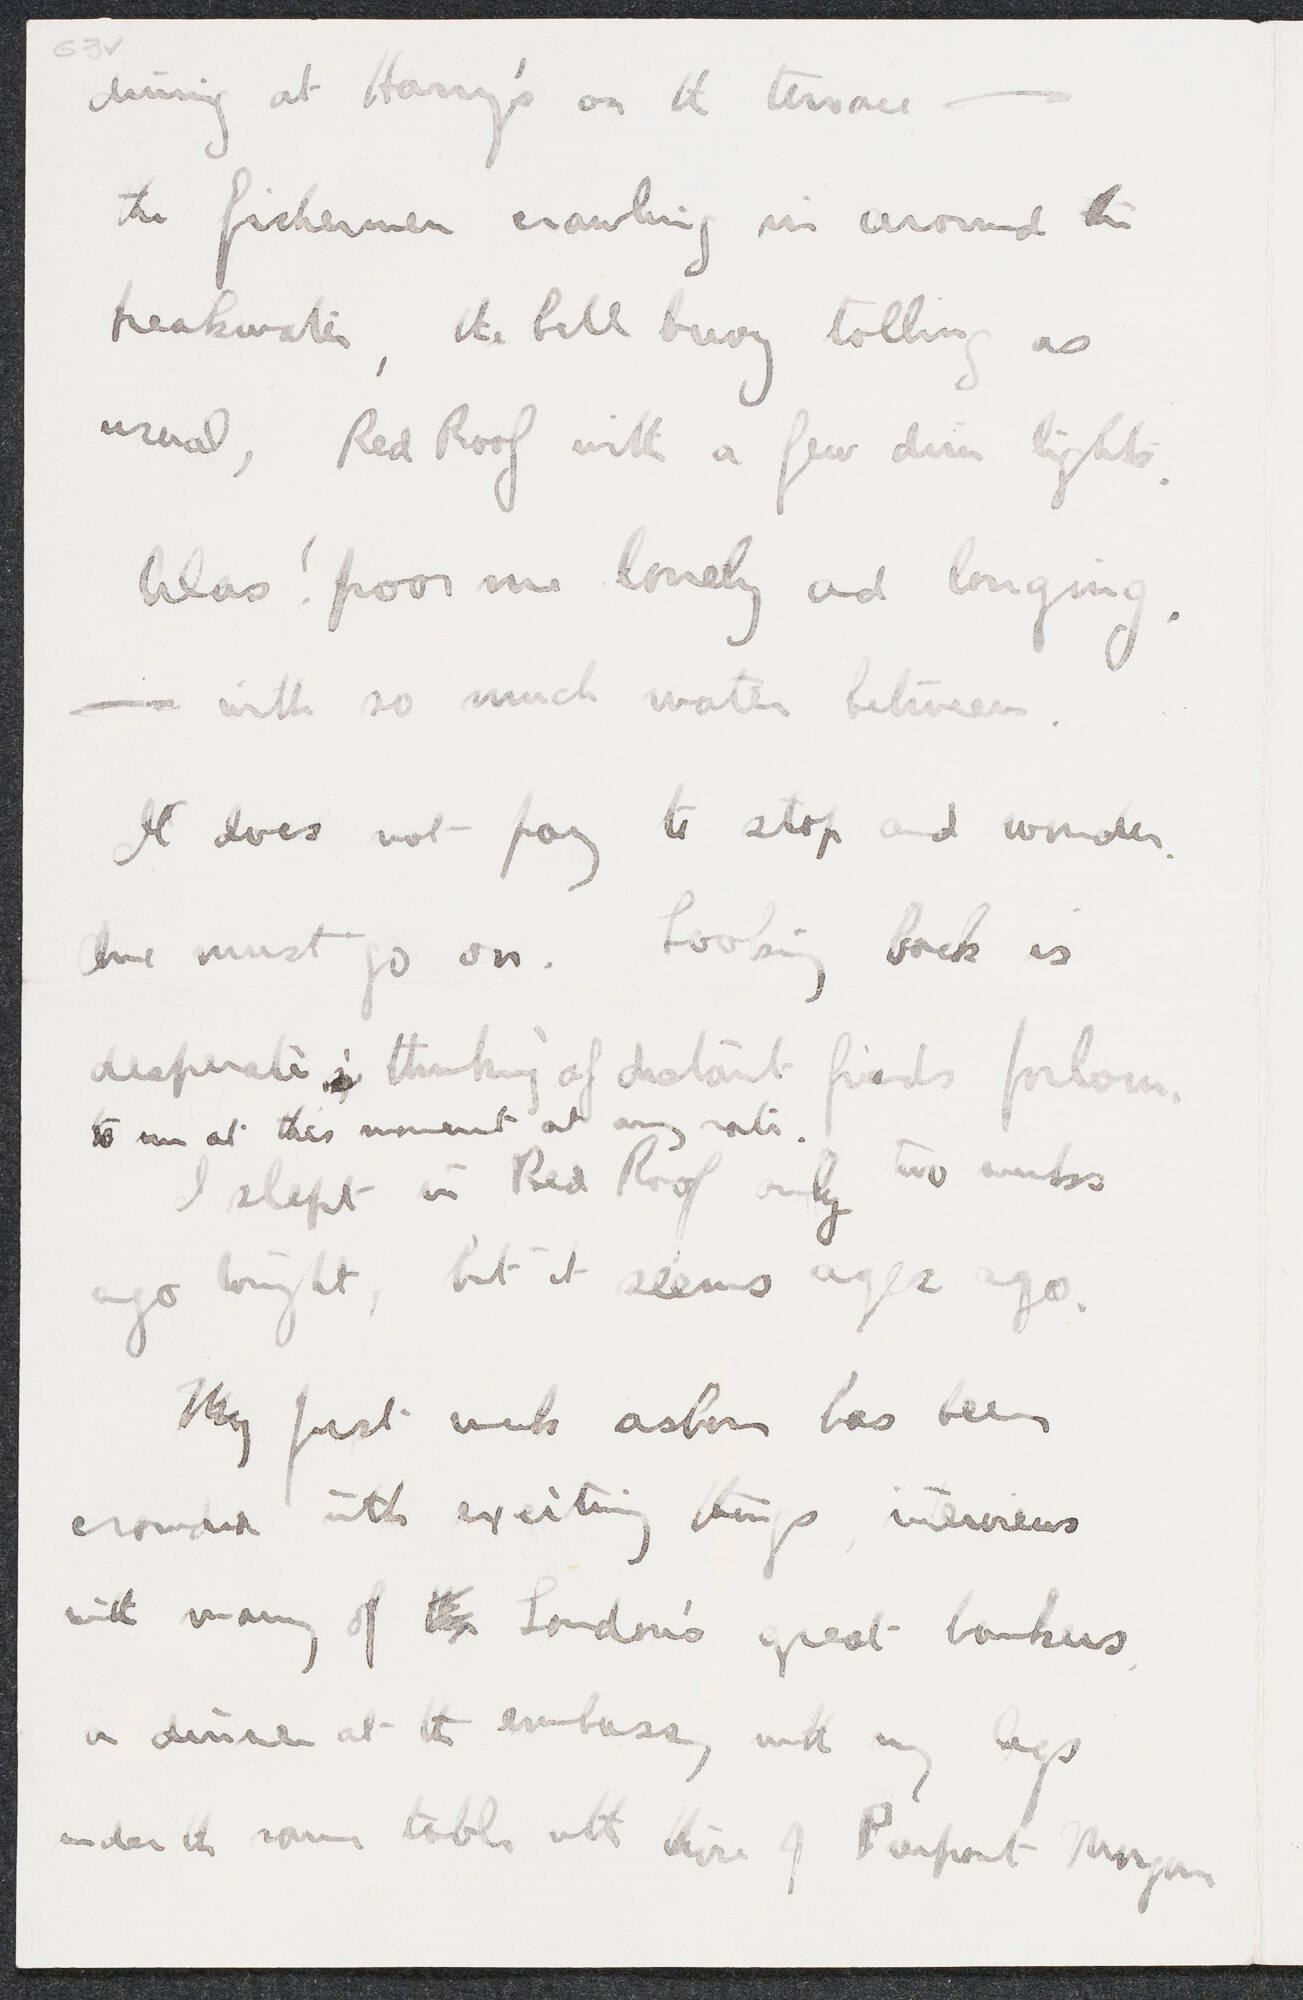 G3v
dining at Harry's on the terrace —
the fishermen crawling in around the
breakwater, the bell buoy tolling as
usual, Red Roof with a few dim lights.
Alas! poor me lonely and longing.
— with so much water between.
It does not pay to stop and wonder.
One must go on. Looking back is
desperate; thinking of distant friends forlorn.
to me at this moment at any rate.
I slept in Red Roof only two weeks
ago tonight, but it seems ages ago.
My first week ashore has been
crowded with exciting things, interviews
with many of London's great bankers,
a dinner at the embassy with my legs
under the same table with those of Pierpont Morgan